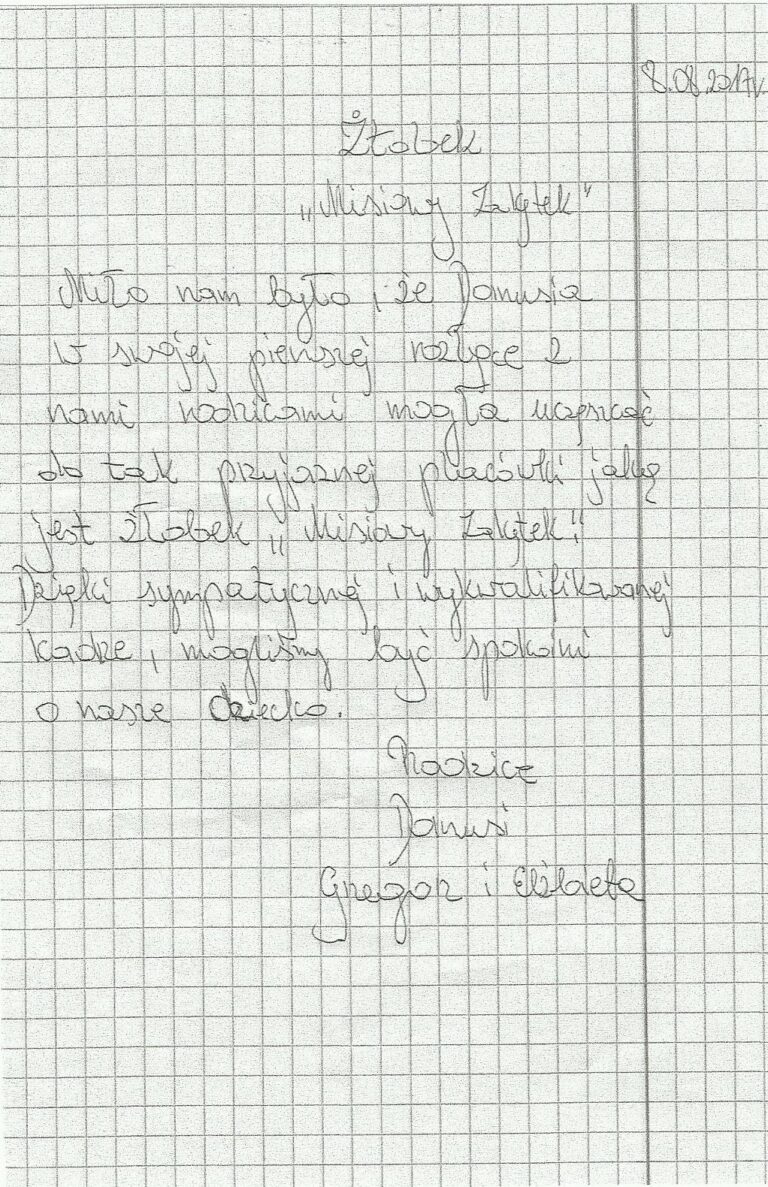 8.08.2017r.
Żłobek
„Misiowy Zakątek"
Miło nam było, że Danusia
w swojej pierwszej rozłące z
nami rodzicami mogła uczęszczać
do tak przyjaznej placówki jaką
jest żłobek „Misiowy Zakątek".
Dzięki sympatycznej i wykwalifikowanej
kadrze, mogliśmy być spokojni
o nasze dziecko.
Rodzice
Danusi
Gregor i Elżbieta